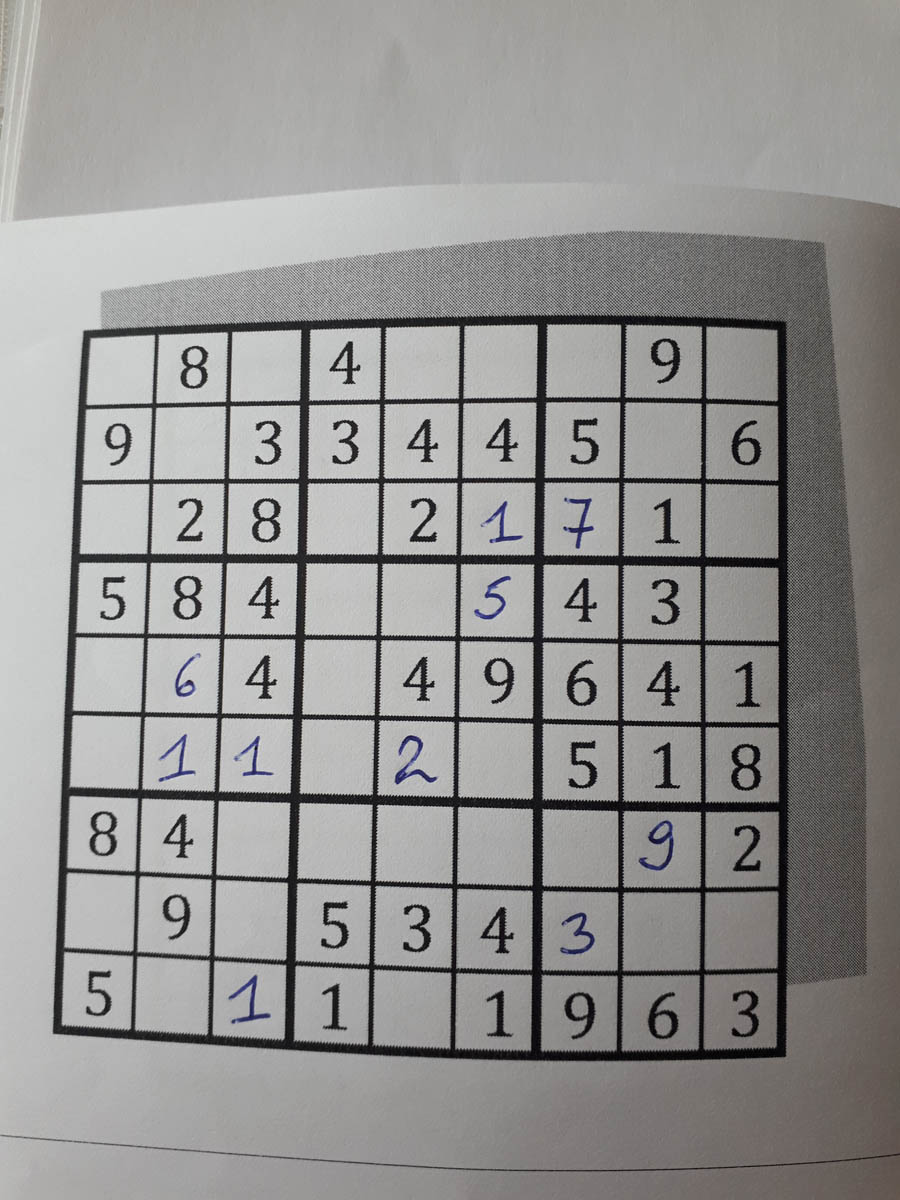 8 4 9
9 3 3 4 4 5 6
2 8 2 1 7 1
5 8 4 5 4 3
6 4 4 9 6 4 1
1 1 2 5 1 8
8 4 9 2
9 5 3 4 3
5 1 1 1 9 6 3